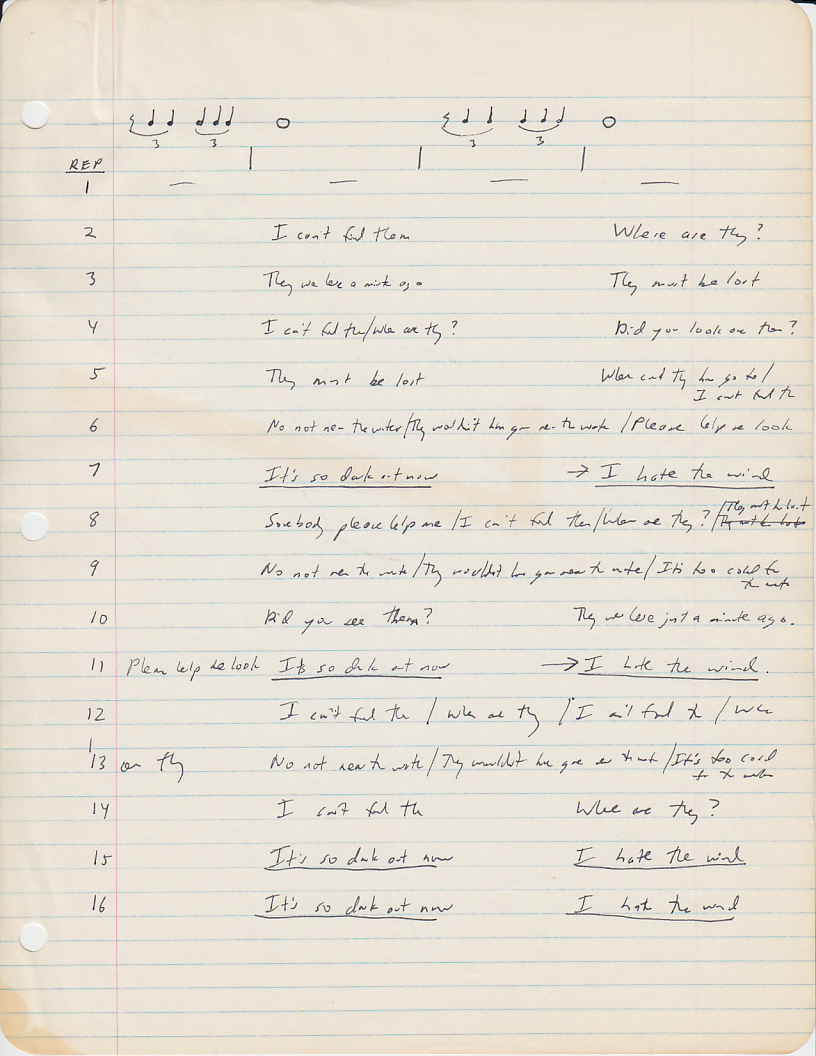 3 3 3 3
REP
1 — — — —
2 I can't find them Where are they?
3 They were here a minute ago They must be lost
4 I can't find them/Where are they? Did you look over there?
5 They must be lost Where could they have gone to/
I can't find them
6 No not near the water/They wouldn't have gone near the water/Please help me look
7 It's so dark out now → I hate the wind
8 Somebody please help me/I can't find them/Where are they?/They must be lost
9 No not near the water/They wouldn't have gone near the water/It's too cold for
the water
10 Did you see them? They were here just a minute ago.
11 Please help me look It's so dark out now → I hate the wind.
12 I can't find them/Where are they/I can't find them/Where
13 are they No not near the water/They wouldn't have gone near the water/It's too cold
for the water
14 I can't find them Where are they?
15 It's so dark out now I hate the wind
16 It's so dark out now I hate the wind